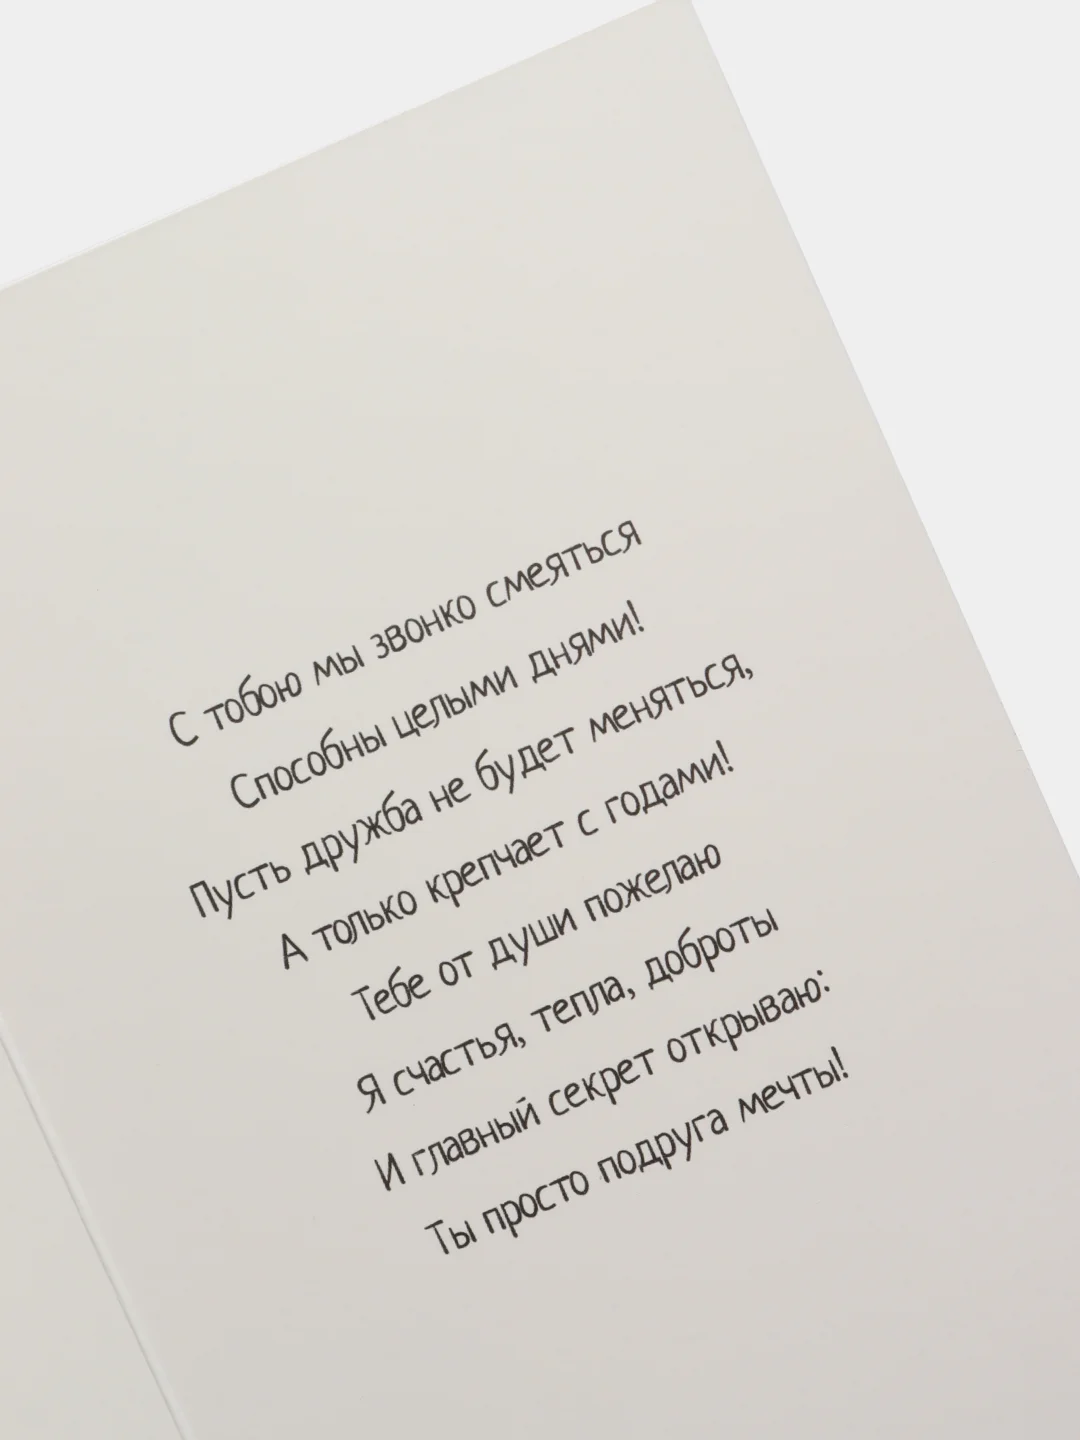 С тобою мы звонко смеяться
Способны целыми днями!
Пусть дружба не будет меняться,
А только крепчает с годами!
Тебе от души пожелаю
Я счастья, тепла, доброты
И главный секрет открываю:
Ты просто подруга мечты!